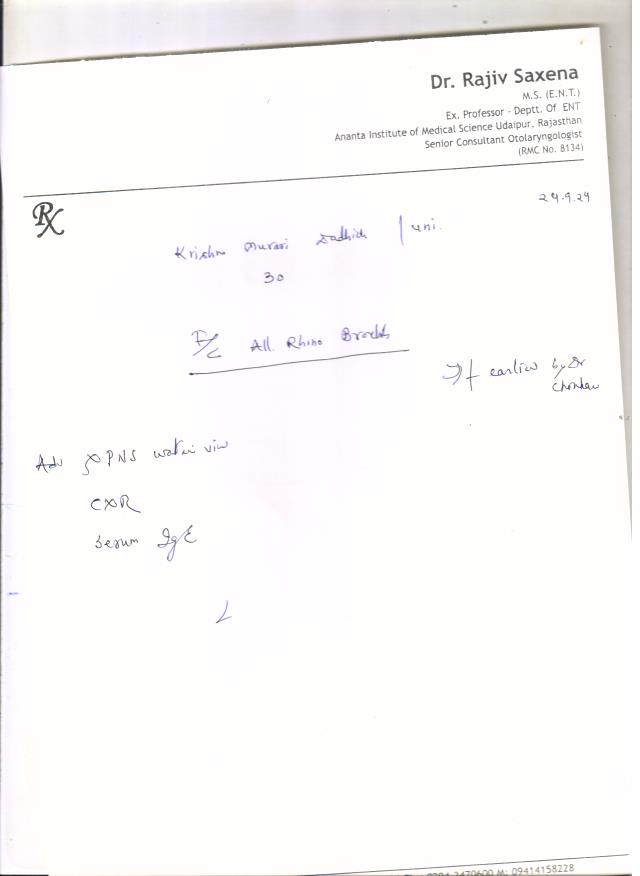 Dr. Rajiv Saxena
M.S. (E.N.T.)
Ex. Professor - Deptt. Of ENT
Ananta Institute of Medical Science Udaipur, Rajasthan
Senior Consultant Otolaryngologist
(RMC No. 8134)
Rx
24.9.24
Krishn Murari Dadhich
30
All. Rhino
earlier by Dr
Adv PNS water view
CXR
Serum IgE
M: 09414158228